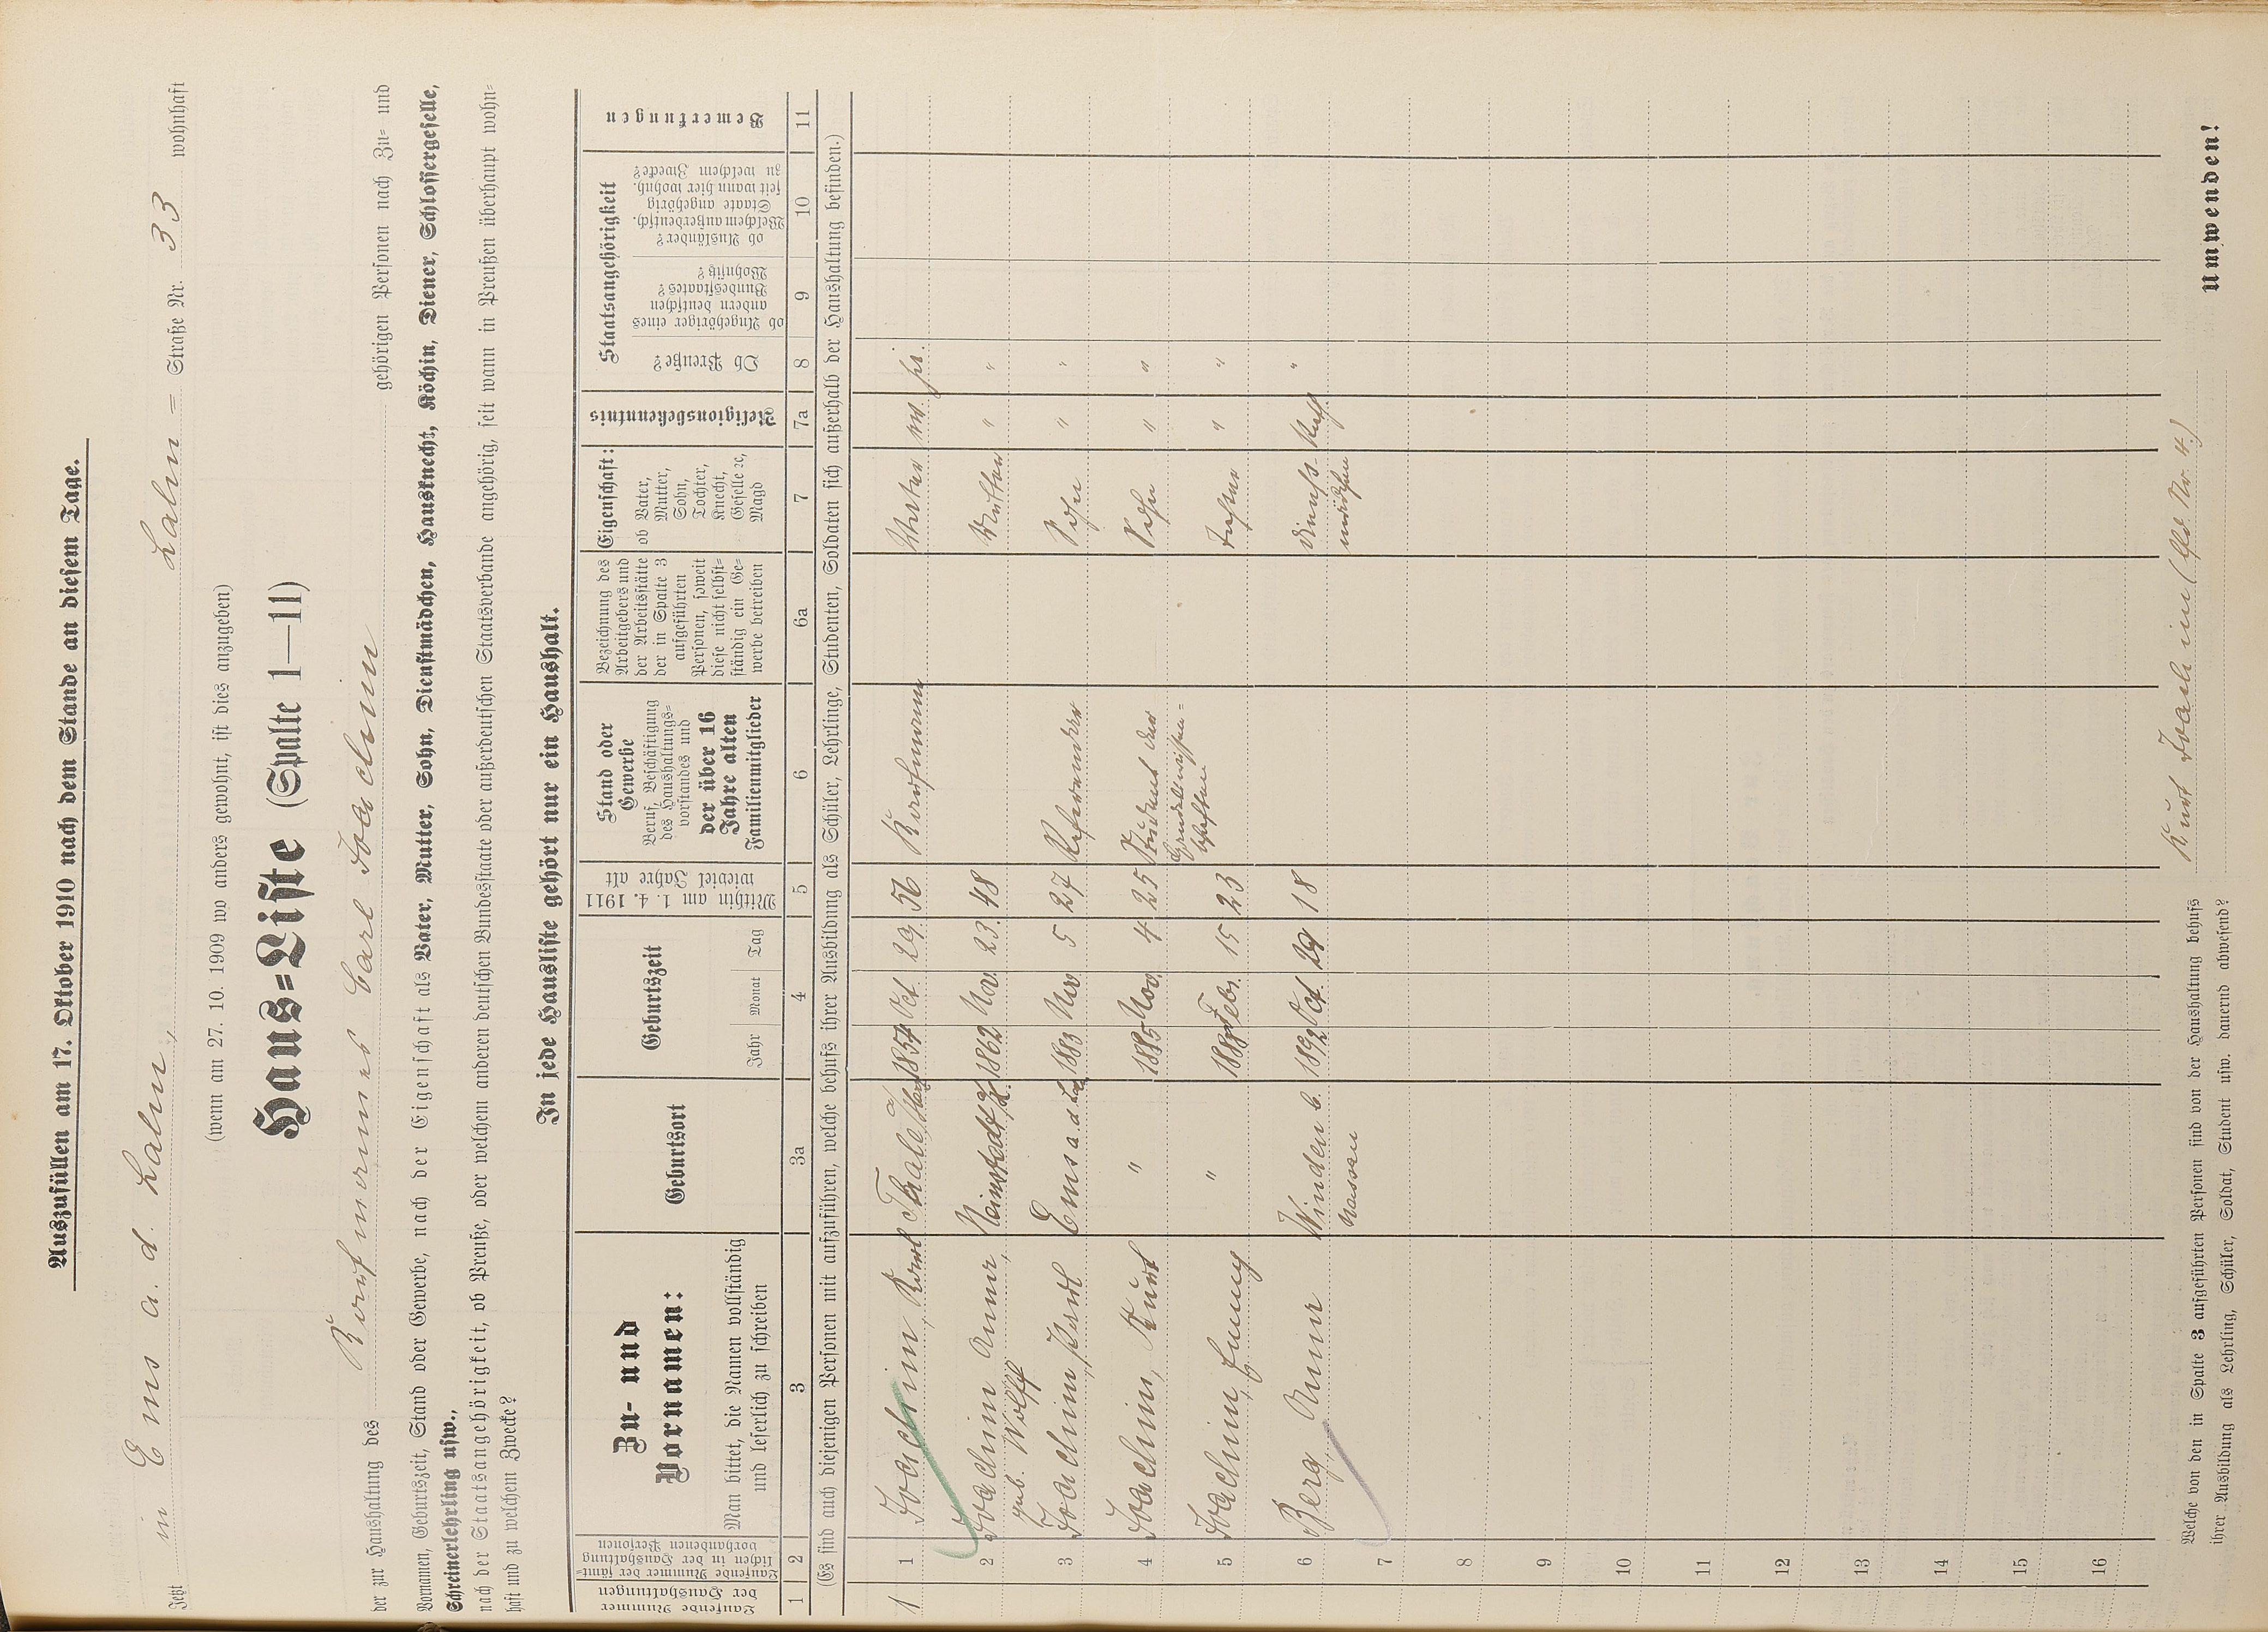 Auszufüllen am 17. Oktober 1910 nach dem Stande an diesem Tage.
Jetzt in Ems a. d. Lahn, Lahn = Straße Nr. 33 wohnhaft
(wenn am 27. 10. 1909 wo anders gewohnt, ist dies anzugeben)
Haus=Liste (Spalte 1—11)
der zur Haushaltung des Kaufmannes Carl Joachim gehörigen Personen nach Zu= und
Vornamen, Geburtszeit, Stand oder Gewerbe, nach der Eigenschaft als Vater, Mutter, Sohn, Dienstmädchen, Hausknecht, Köchin, Diener, Schlossergeselle,
Schreinerlehrling usw.,
nach der Staatsangehörigkeit, ob Preuße, oder welchem anderen deutschen Bundesstaate oder außerdeutschen Staatsverbande angehörig, seit wann in Preußen überhaupt wohn=
haft und zu welchem Zwecke?
In jede Hausliste gehört nur ein Haushalt.
Laufende Nummer der Haushaltungen
Laufende Nummer der sämt=lichen in der Haushaltung vorhandenen Personen
Zu- und Vornamen:
Man bittet, die Namen vollständig und leserlich zu schreiben
Geburtsort
Geburtszeit
Jahr Monat Tag
Mithin am 1. 4. 1911 wieviel Jahre alt
Stand oder Gewerbe
Beruf, Beschäftigung des Haushaltungs=vorstandes und der über 16 Jahre alten Familienmitglieder
Bezeichnung des Arbeitgebers und der Arbeitsstätte der in Spalte 3 aufgeführten Personen, soweit diese nicht selbst=ständig ein Ge=werbe betreiben
Eigenschaft:
ob Vater, Mutter, Sohn, Tochter, Knecht, Geselle ec, Magd
Religionsbekenntnis
Staatsangehörigkeit
Ob Preuße?
ob Angehöriger eines andern deutschen Bundesstaates? Wohnsitz?
ob Ausländer? Welchem außerdeutsch. Staate angehörig seit wann hier wohnh. zu welchem Zwecke?
Bemerkungen
1 2 3 3a 4 5 6 6a 7 7a 8 9 10 11
(Es sind auch diejenigen Personen mit aufzuführen, welche behufs ihrer Ausbildung als Schüler, Lehrlinge, Studenten, Soldaten sich außerhalb der Haushaltung befinden.)
1 1 Joachim, Karl Thale a/Harz 1854 Oct. 29. 56 Kaufmann Vater
2 Joachim Anna, 1862 Nov. 23. 48 Mutter " "
geb. Wolff
3 Joachim, Paul Ems a. d. Lahn 1883 Nov 5 27 Referendar Sohn " "
4 Joachim, Kurt " 1885 Nov. 4 25 Student der Sohn " "
Handelswissen=
schaften
5 Joachim, Fanny " Febr. 15 23 Tochter " "
6 Berg Anna Winden b. 1892 Oct. 29 18 Dienst- "
Nassau mädchen
7
8
9
10
11
12
13
14
15
16
Welche von den in Spalte 3 aufgeführten Personen sind von der Haushaltung behufs
ihrer Ausbildung als Lehrling, Schüler, Soldat, Student usw. dauernd abwesend?
Kurt Joachim (lfd. Nr. 4.)
Umwenden!